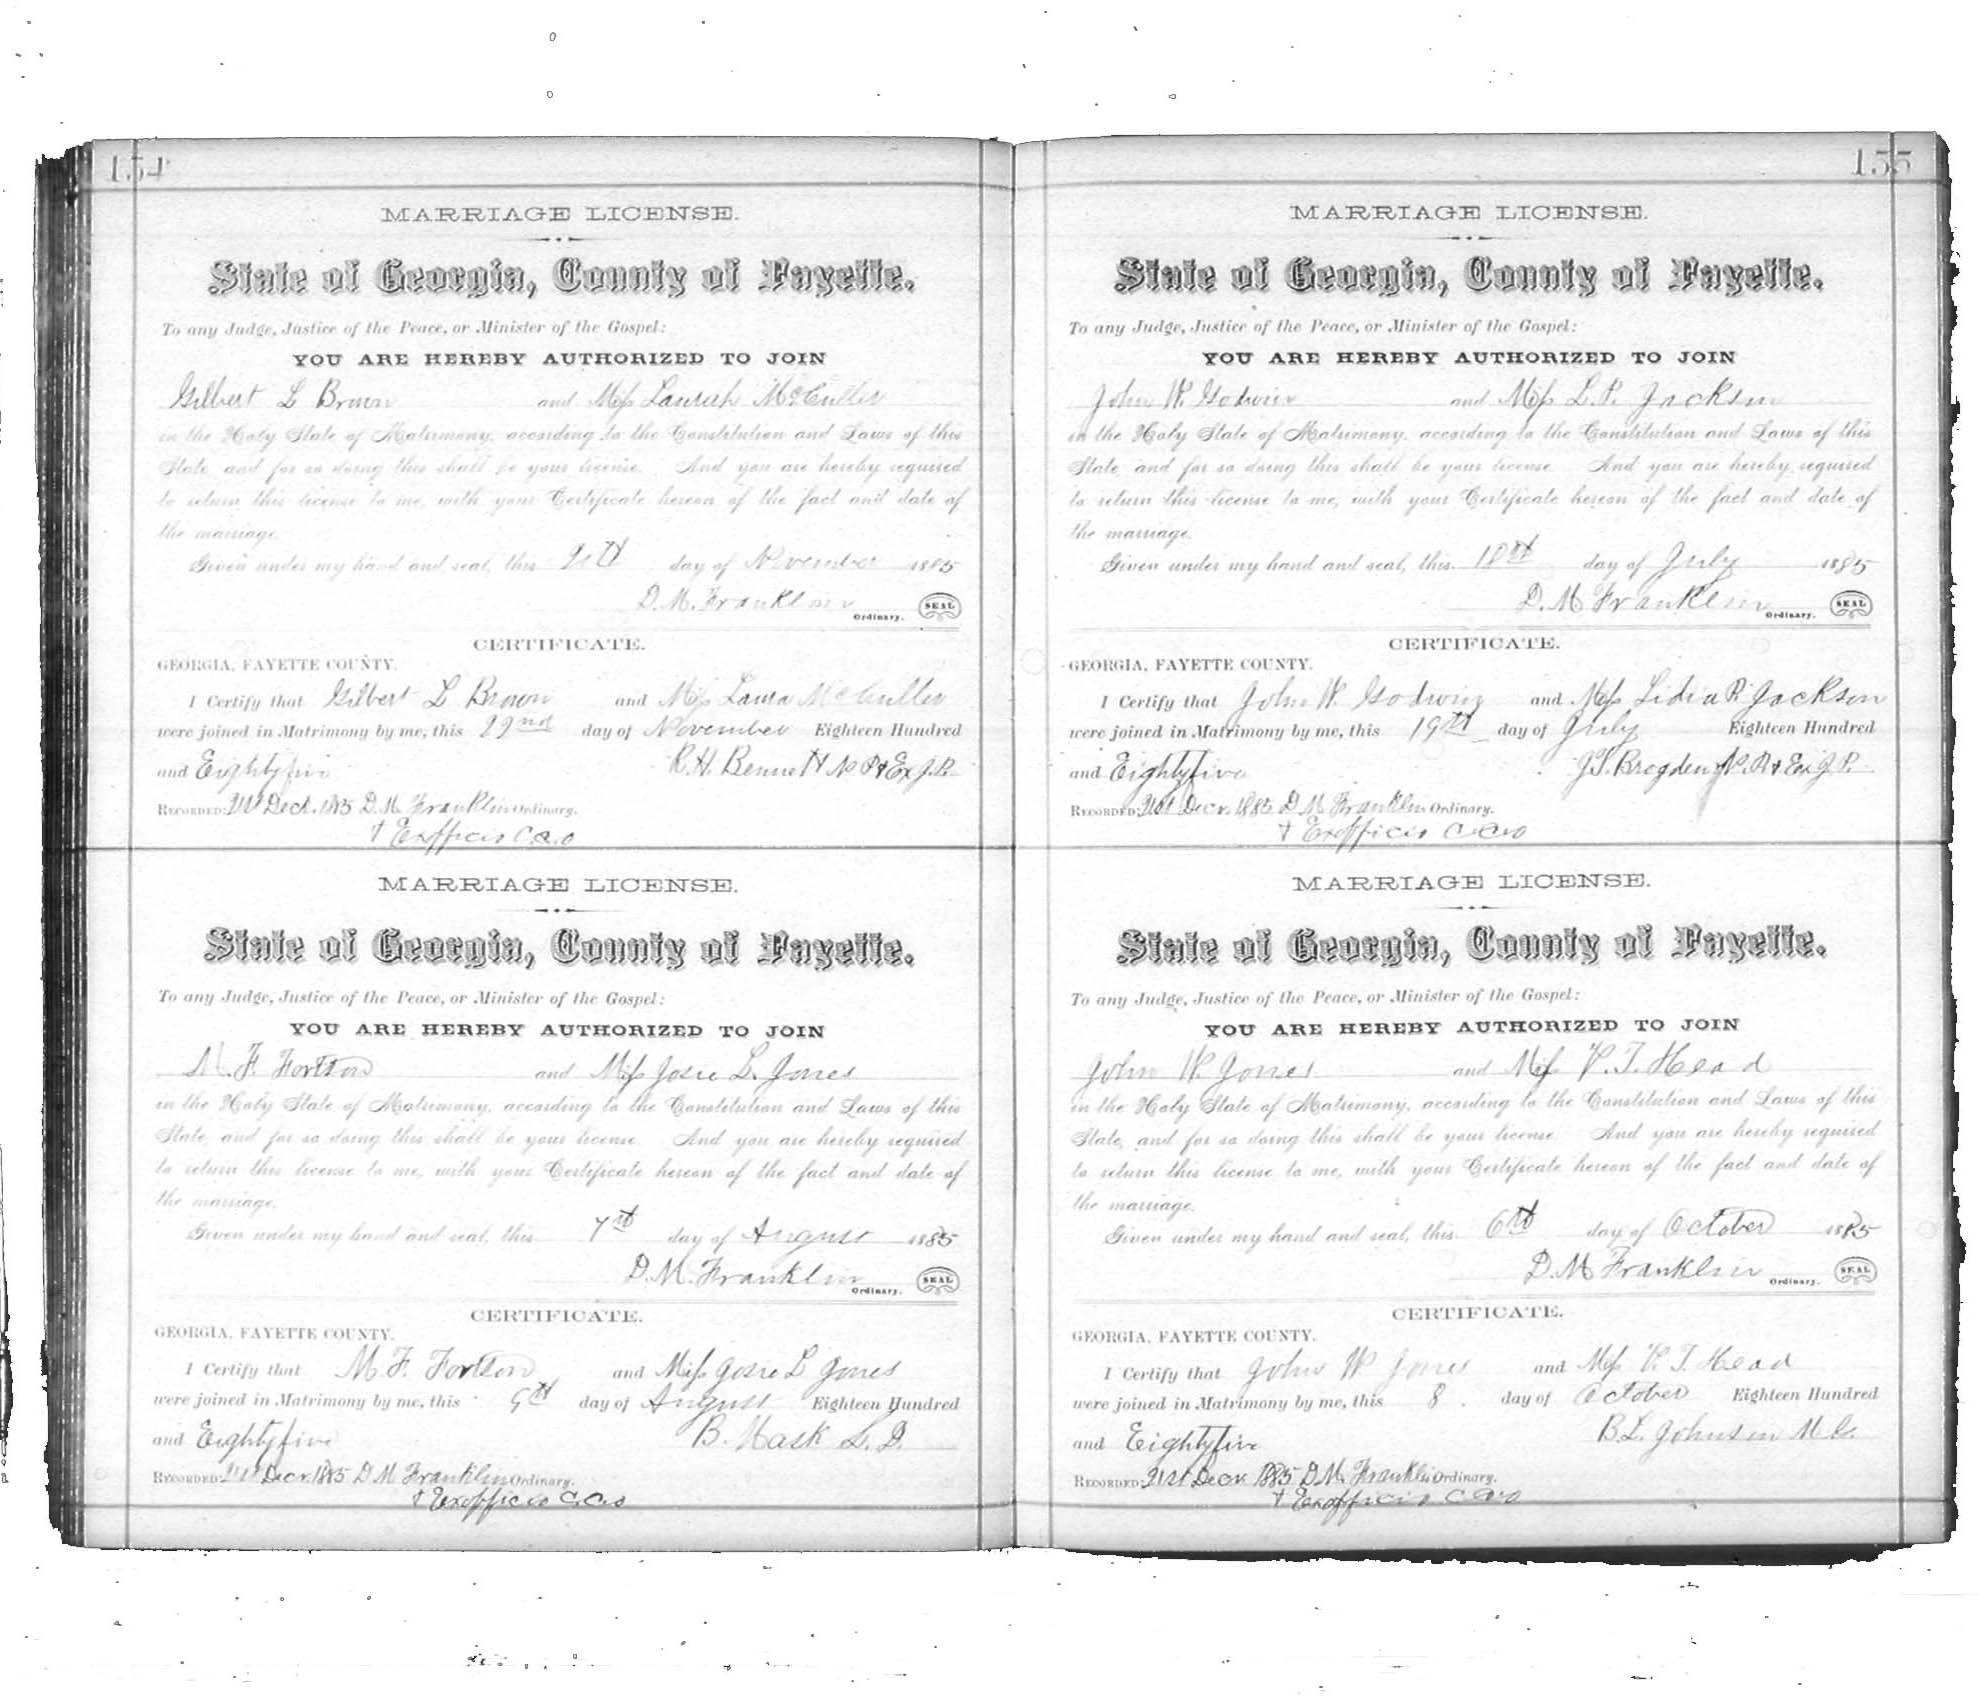 154
MARRIAGE LICENSE.
State of Georgia, County of Fayette.
To any Judge, Justice of the Peace, or Minister of the Gospel:
YOU ARE HEREBY AUTHORIZED TO JOIN
Gilbert L Brown and Miss Laurah McCuller
in the Holy State of Matrimony, according to the Constitution and Laws of this
State, and for so doing this shall be your license. And you are hereby required
to return this license to me, with your Certificate hereon of the fact and date of
the marriage.
Given under my hand and seal, this day of November 1885
D. M. Franklin
Ordinary. SEAL
CERTIFICATE.
GEORGIA, FAYETTE COUNTY.
I Certify that Gilbert L Brown and Miss Laura McCuller
were joined in Matrimony by me, this 22nd day of November Eighteen Hundred
and Eightyfive R. H. Bennett N P & Ex J. P.
RECORDED: 21st Decr. 1885 D. M. Franklin Ordinary.
& Exofficio C.C.O
MARRIAGE LICENSE.
State of Georgia, County of Fayette.
To any Judge, Justice of the Peace, or Minister of the Gospel:
YOU ARE HEREBY AUTHORIZED TO JOIN
M. F. Fortson and Miss Josie L. Jones
in the Holy State of Matrimony, according to the Constitution and Laws of this
State, and for so doing this shall be your license. And you are hereby required
to return this license to me, with your Certificate hereon of the fact and date of
the marriage.
Given under my hand and seal, this 7th day of August 1885
D. M. Franklin
Ordinary. SEAL
CERTIFICATE.
GEORGIA, FAYETTE COUNTY.
I Certify that M. F. Fortson and Miss Josie L Jones
were joined in Matrimony by me, this 9th day of August Eighteen Hundred
and Eightyfive B. Mask
RECORDED: 21st Decr. 1885 D M Franklin Ordinary.
& Exofficio C.C.O
155
MARRIAGE LICENSE.
State of Georgia, County of Fayette.
To any Judge, Justice of the Peace, or Minister of the Gospel:
YOU ARE HEREBY AUTHORIZED TO JOIN
John W. Godwin and Miss L. P. Jackson
in the Holy State of Matrimony, according to the Constitution and Laws of this
State, and for so doing this shall be your license. And you are hereby required
to return this license to me, with your Certificate hereon of the fact and date of
the marriage.
Given under my hand and seal, this 18th day of July 1885
D. M Franklin
Ordinary. SEAL
CERTIFICATE.
GEORGIA, FAYETTE COUNTY.
I Certify that John W. Godwin and Miss Lidia P. Jackson
were joined in Matrimony by me, this 19th day of July Eighteen Hundred
and Eightyfive J. T. Brogden N. P. & Ex J. P.
RECORDED: 21st Decr. 1885 D M Franklin Ordinary.
& Exofficio C.C.O
MARRIAGE LICENSE.
State of Georgia, County of Fayette.
To any Judge, Justice of the Peace, or Minister of the Gospel:
YOU ARE HEREBY AUTHORIZED TO JOIN
John W. Jones and Miss V. T. Head
in the Holy State of Matrimony, according to the Constitution and Laws of this
State, and for so doing this shall be your license. And you are hereby required
to return this license to me, with your Certificate hereon of the fact and date of
the marriage.
Given under my hand and seal, this 6th day of October 1885
D. M Franklin
Ordinary. SEAL
CERTIFICATE.
GEORGIA, FAYETTE COUNTY.
I Certify that John W Jones and Miss V. T. Head
were joined in Matrimony by me, this 8 day of October Eighteen Hundred
and Eightyfive B. L. Johnson M. G.
RECORDED: 21st Decr. 1885 D M. Franklin Ordinary.
& Exofficio C.C.O